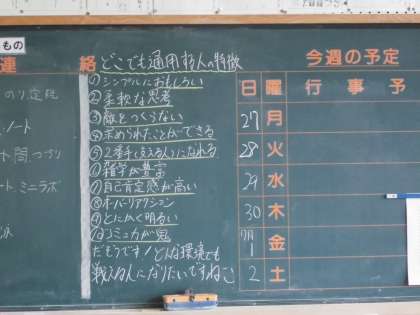 もの
連絡
のり、定規
ノート
ミニラボ
どこでも通用する人の特徴
①シンプルにおもしろい
②柔軟な思考
③敵をつくらない
④求められたことができる
⑤2番手(支える人)になれる
⑥雑学が豊富
⑦自己肯定感が高い
⑧オーバーリアクション
⑨とにかく明るい
⑩コミュ力が鬼
だそうです!どんな環境でも
戦える人になりたいですねご
今週の予定
日 曜 行事予
27 月
28 火
29 水
30 木
7月 1 金
2 土